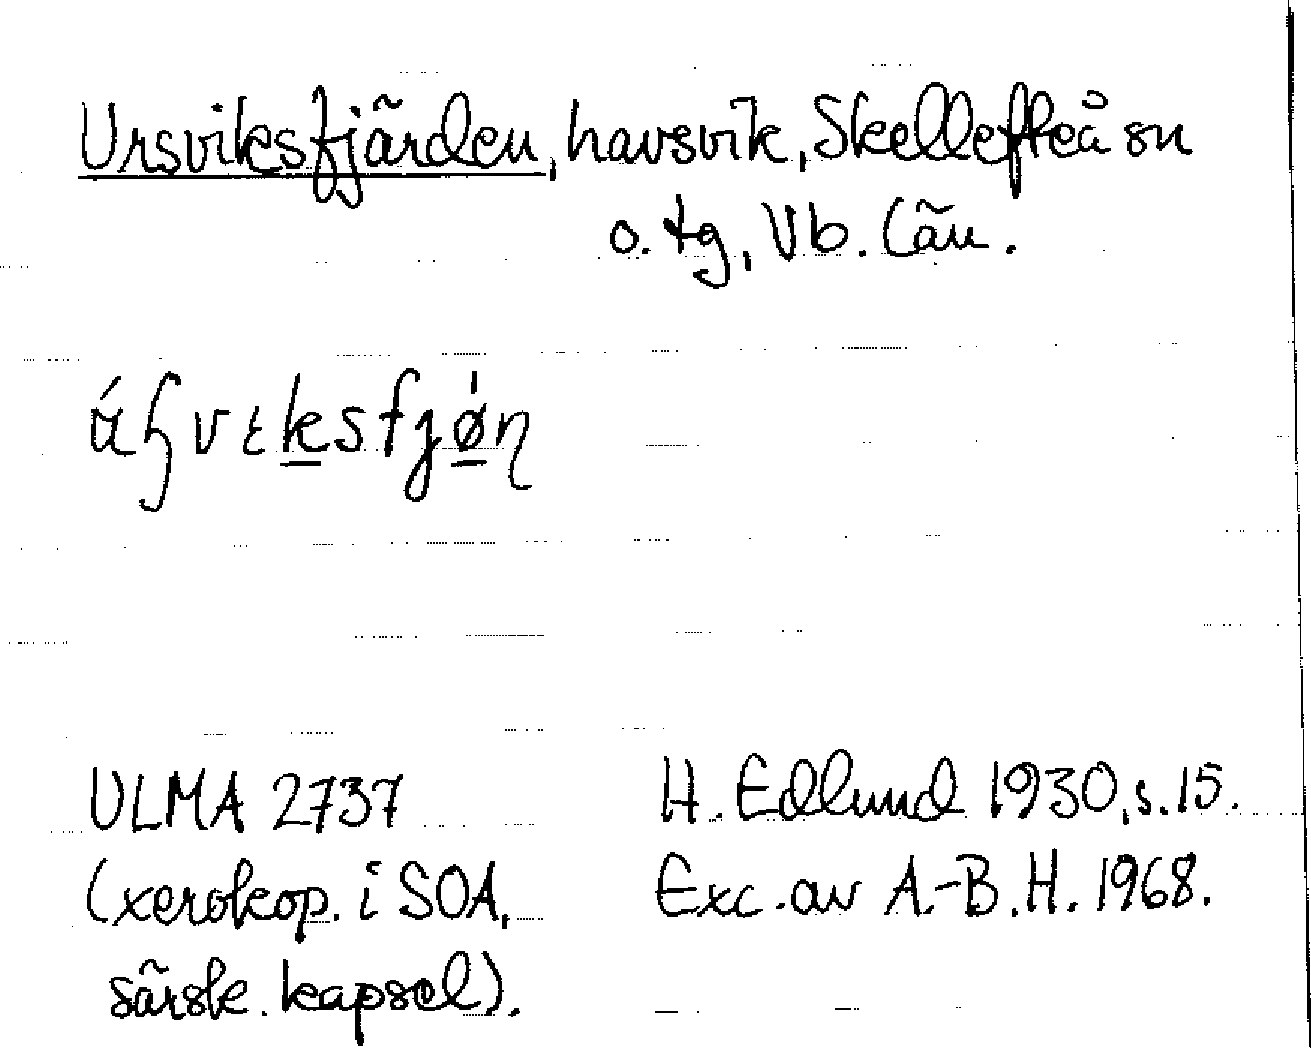 Ursviksfjärden, havsvik, Skellefteå sn
o. tg, Vb. län.
ULMA 2737
(xerokop. i SOA,
särsk. kapsel).
H. Edlund 1930, s. 15.
Exc. av A.-B. H. 1968.